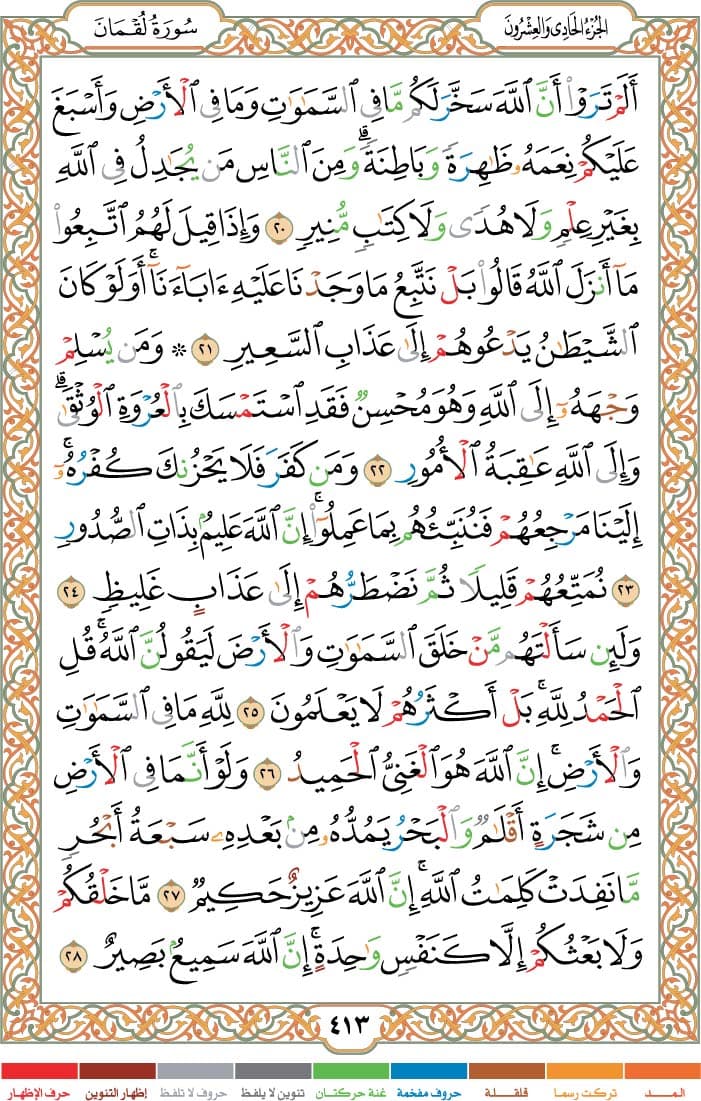 الجزء الحادي والعشرون
سورة لقمان
أَلَمْ تَرَوْا۟ أَنَّ ٱللَّهَ سَخَّرَ لَكُم مَّا فِى ٱلسَّمَٰوَٰتِ وَمَا فِى ٱلْأَرْضِ وَأَسْبَغَ
عَلَيْكُمْ نِعَمَهُۥ ظَٰهِرَةً وَبَاطِنَةً ۗ وَمِنَ ٱلنَّاسِ مَن يُجَٰدِلُ فِى ٱللَّهِ
بِغَيْرِ عِلْمٍ وَلَا هُدًى وَلَا كِتَٰبٍ مُّنِيرٍ ٢٠ وَإِذَا قِيلَ لَهُمُ ٱتَّبِعُوا۟
مَآ أَنزَلَ ٱللَّهُ قَالُوا۟ بَلْ نَتَّبِعُ مَا وَجَدْنَا عَلَيْهِ ءَابَآءَنَآ ۚ أَوَلَوْ كَانَ
ٱلشَّيْطَٰنُ يَدْعُوهُمْ إِلَىٰ عَذَابِ ٱلسَّعِيرِ ٢١ ۞ وَمَن يُسْلِمْ
وَجْهَهُۥٓ إِلَى ٱللَّهِ وَهُوَ مُحْسِنٌ فَقَدِ ٱسْتَمْسَكَ بِٱلْعُرْوَةِ ٱلْوُثْقَىٰ ۗ
وَإِلَى ٱللَّهِ عَٰقِبَةُ ٱلْأُمُورِ ٢٢ وَمَن كَفَرَ فَلَا يَحْزُنكَ كُفْرُهُۥٓ ۚ
إِلَيْنَا مَرْجِعُهُمْ فَنُنَبِّئُهُم بِمَا عَمِلُوٓا۟ ۚ إِنَّ ٱللَّهَ عَلِيمٌۢ بِذَاتِ ٱلصُّدُورِ
٢٣ نُمَتِّعُهُمْ قَلِيلًا ثُمَّ نَضْطَرُّهُمْ إِلَىٰ عَذَابٍ غَلِيظٍ ٢٤
وَلَئِن سَأَلْتَهُم مَّنْ خَلَقَ ٱلسَّمَٰوَٰتِ وَٱلْأَرْضَ لَيَقُولُنَّ ٱللَّهُ ۚ قُلِ
ٱلْحَمْدُ لِلَّهِ ۚ بَلْ أَكْثَرُهُمْ لَا يَعْلَمُونَ ٢٥ لِلَّهِ مَا فِى ٱلسَّمَٰوَٰتِ
وَٱلْأَرْضِ ۚ إِنَّ ٱللَّهَ هُوَ ٱلْغَنِىُّ ٱلْحَمِيدُ ٢٦ وَلَوْ أَنَّمَا فِى ٱلْأَرْضِ
مِن شَجَرَةٍ أَقْلَٰمٌ وَٱلْبَحْرُ يَمُدُّهُۥ مِنۢ بَعْدِهِۦ سَبْعَةُ أَبْحُرٍ
مَّا نَفِدَتْ كَلِمَٰتُ ٱللَّهِ ۗ إِنَّ ٱللَّهَ عَزِيزٌ حَكِيمٌ ٢٧ مَّا خَلْقُكُمْ
وَلَا بَعْثُكُمْ إِلَّا كَنَفْسٍ وَٰحِدَةٍ ۗ إِنَّ ٱللَّهَ سَمِيعٌۢ بَصِيرٌ ٢٨
٤١٣
المـــد
تركت رسما
قلقـلة
حروف مفخمة
غنة حركتان
تنوين لا يلفظ
حروف لا تلفظ
إظهار التنوين
حرف الإظهار